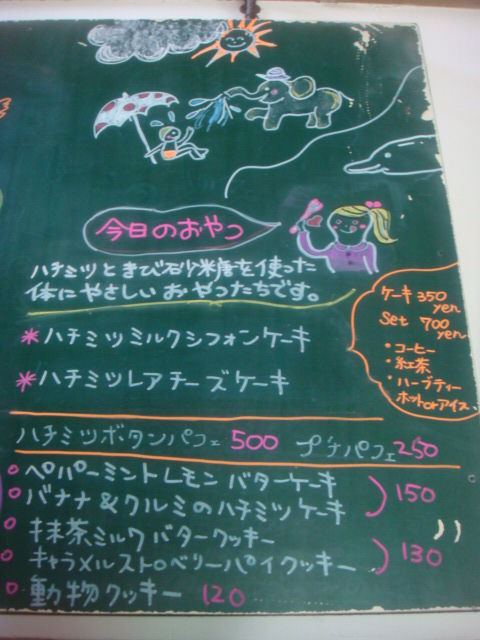 今日のおやつ
ハチミツときび砂糖を使った
体にやさしいおやつたちです。
*ハチミツミルクシフォンケーキ
*ハチミツレアチーズケーキ
ケーキ 350 yen
Set 700 yen
・コーヒー
・紅茶
・ハーブティー
ホット or アイス
ハチミツボタンパフェ 500 プチパフェ 250
○ペパーミントレモンバターケーキ
○バナナ&クルミのハチミツケーキ
150
○抹茶ミルクバタークッキー
○キャラメルストロベリーパイクッキー
130
○動物クッキー 120